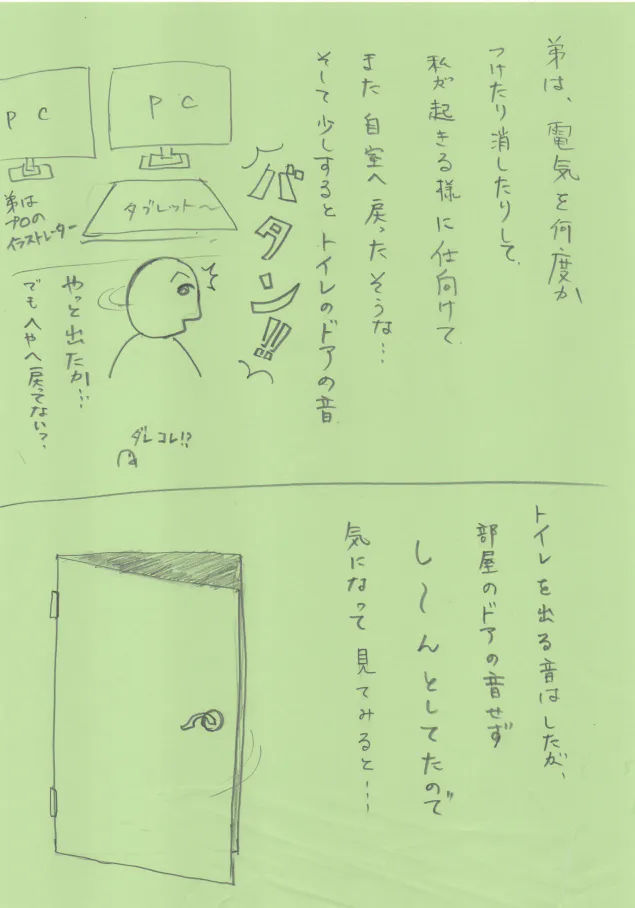 弟は、電気を何度か
つけたり消したりして、
私が起きる様に仕向けて
また自室へ戻ったそうな…
そして少しするとトイレのドアの音
バタン!!
PC
PC
タブレット〜
弟は
プロの
イラストレーター
やっと出たか…
でもへやへ戻ってない?
ダレコレ!?
トイレを出る音はしたが、
部屋のドアの音せず
し〜んとしてたので
気になって見てみると…